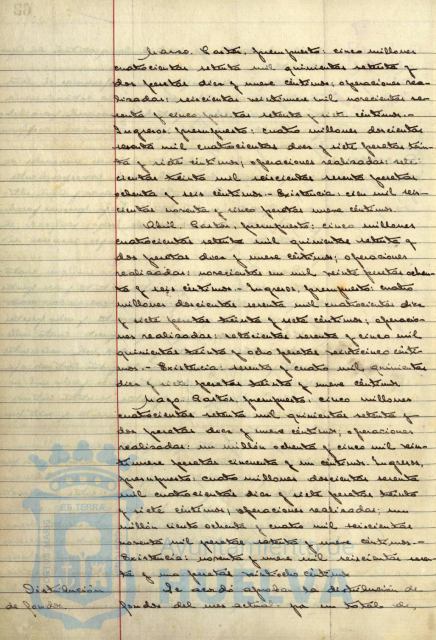 Marzo. Gastos, presupuesto: cinco millones
cuatrocientas setenta mil quinientas setenta y
dos pesetas diez y nueve céntimos; operaciones rea-
lizadas: seiscientas veintinueve mil novecientas se-
senta y cinco pesetas setenta y siete céntimos.-
Ingresos, presupuesto: cuatro millones doscientas
sesenta mil cuatrocientas diez y siete pesetas trein-
ta y siete céntimos; operaciones realizadas: seis-
cientas treinta mil seiscientas sesenta pesetas
ochenta y seis céntimos.- Existencia: cien mil seis-
cientas noventa y cinco pesetas nueve céntimos.
Abril. Gastos, presupuesto: cinco millones
cuatrocientas setenta mil quinientas setenta y
dos pesetas diez y nueve céntimos; operaciones
realizadas: novecientas un mil veinte pesetas ochen-
ta y seis céntimos.- Ingresos, presupuesto: cuatro
millones doscientas sesenta mil cuatrocientas diez
y siete pesetas treinta y siete céntimos; operacio-
nes realizadas: setecientas sesenta y cinco mil
quinientas treinta y ocho pesetas veinticinco cénti-
mos.- Existencia: sesenta y cuatro mil quinientas
diez y siete pesetas treinta y nueve céntimos.
Mayo. Gastos, presupuesto: cinco millones
cuatrocientas setenta mil quinientas setenta y
dos pesetas diez y nueve céntimos; operaciones
realizadas: un millón ochenta y cinco mil vein-
tinueve pesetas cincuenta y un céntimos. Ingresos,
presupuesto: cuatro millones doscientas sesenta
mil cuatrocientas diez y siete pesetas treinta
y siete céntimos; operaciones realizadas: un
millón ciento ochenta y cuatro mil seiscientas
noventa mil pesetas setenta y nueve céntimos.-
Existencia: noventa y nueve mil seiscientas sesen-
ta y una pesetas veintiocho céntimos.
Distribución Se acordó aprobar la distribución de
de fondos. fondos del mes actual, por un total de,